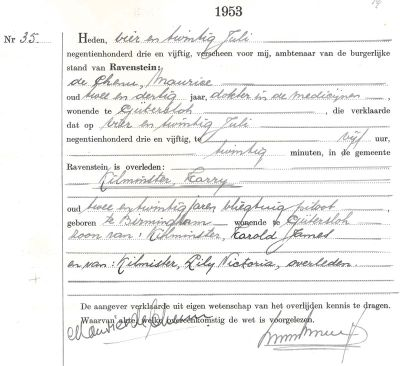 1953
Nr 35.
Heden, vier en twintig Juli
negentienhonderd drie en vijftig, verscheen voor mij, ambtenaar van de burgerlijke
stand van Ravenstein:
de Chenu, Maurice
oud twee en dertig jaar, dokter in de medicijnen
wonende te Gütersloh, die verklaarde
dat op vier en twintig Juli
negentienhonderd drie en vijftig, te vijf uur,
twintig minuten, in de gemeente
Ravenstein is overleden:
Kilminster, Harry
oud twee en twintig jaren, vliegtuig piloot
geboren te Birmingham wonende te Gütersloh
zoon van: Kilminster, Harold James
en van: Kilmister, Lily Victoria, overleden.
De aangever verklaarde uit eigen wetenschap van het overlijden kennis te dragen.
Waarvan akte, welke overeenkomstig de wet is voorgelezen.